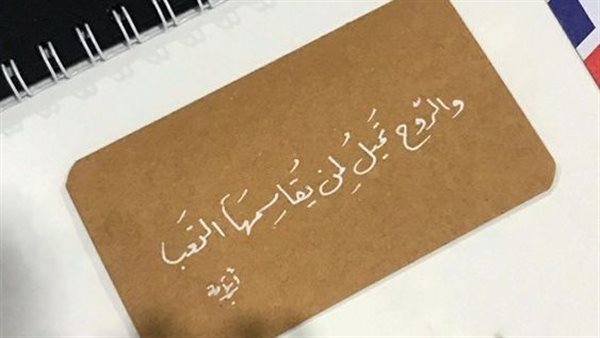 والرّوح تَميلِ لِمن يُقاسِمهَا التعَبا